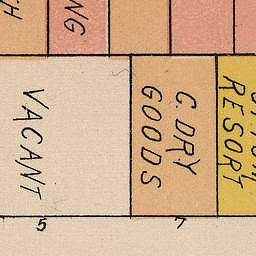 VACANT
C. DRY
GOODS
RESORT
5
7